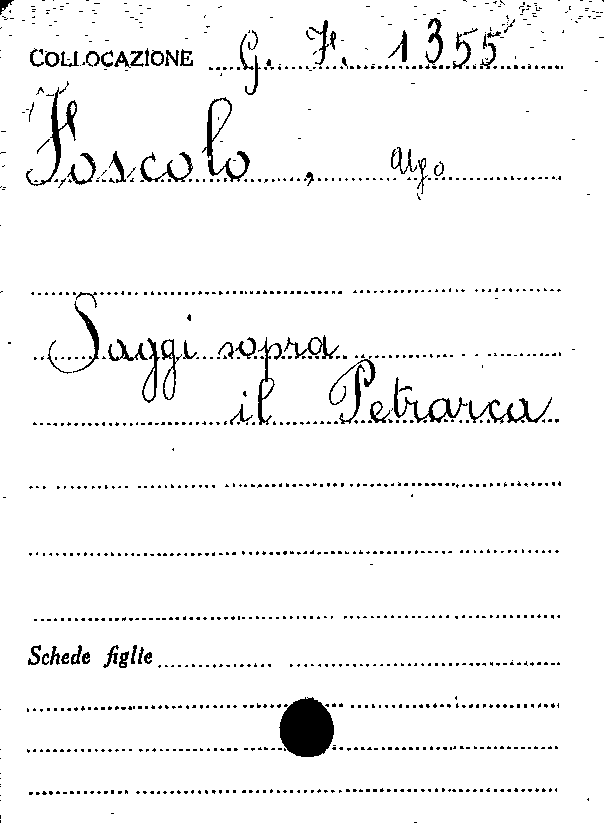 COLLOCAZIONE G. F. 1355
Foscolo, Ugo
Saggi sopra
il Petrarca
Schede figlie